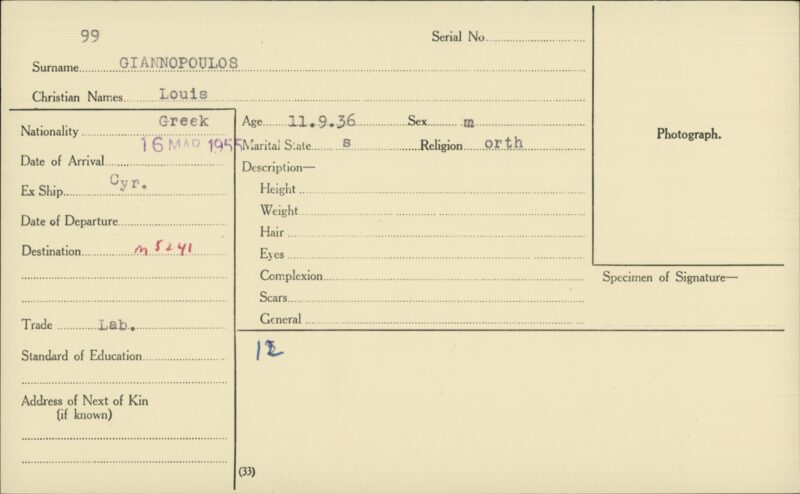 99
Serial No.
Surname GIANNOPOULOS
Christian Names Louis
Nationality Greek
Date of Arrival 16 MAR 1955
Ex Ship Cyr.
Date of Departure
Destination m 5241
Trade Lab.
Standard of Education
Address of Next of Kin
(if known)
Age 11.9.36 Sex m
Marital State s Religion orth
Description—
Height
Weight
Hair
Eyes
Complexion
Scars
General
12
(33)
Photograph.
Specimen of Signature—